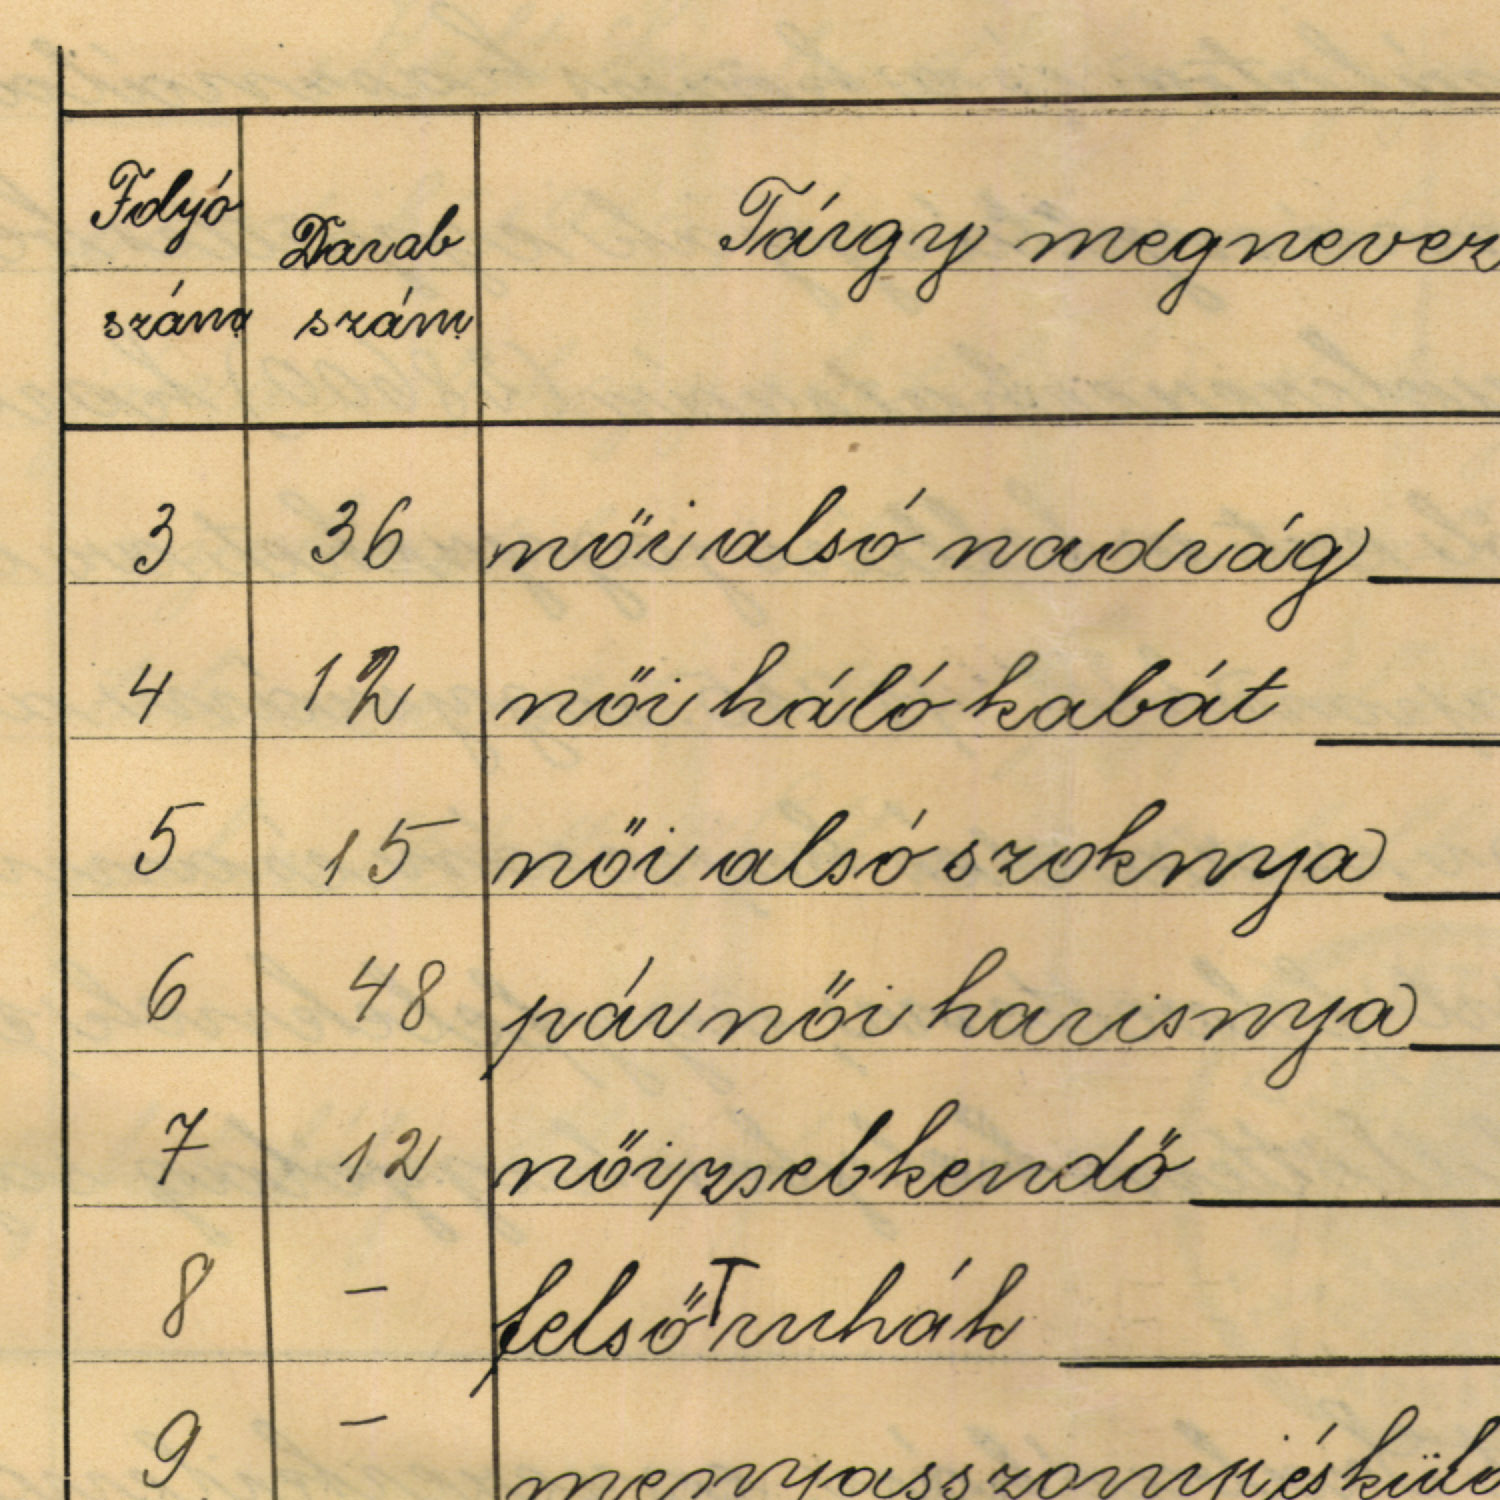 Folyó
szám
Darab
szám
Tárgy megnevez
3 36 női alsó nadrág
4 12 női háló kabát
5 15 női alsó szoknya
6 48 pár női harisnya
7 12 női zsebkendő
8 – felső ruhák
9 – menyasszonyi és